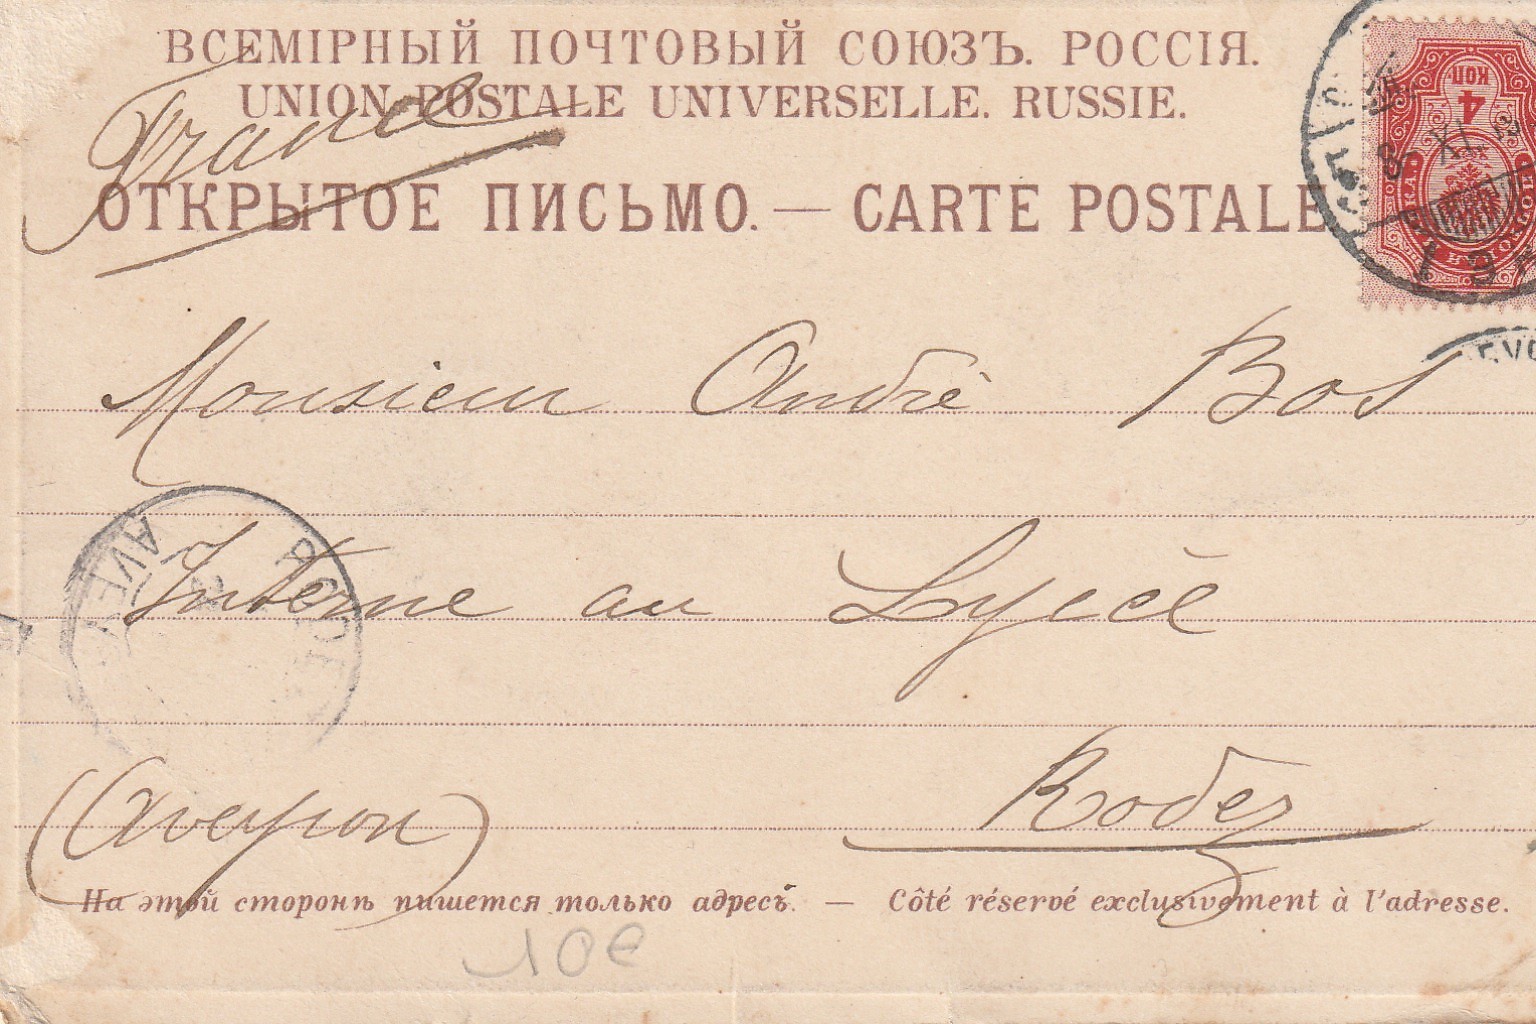 ВСЕМІРНЫЙ ПОЧТОВЫЙ СОЮЗЪ. РОССІЯ.
UNION POSTALE UNIVERSELLE. RUSSIE.
France
ОТКРЫТОЕ ПИСЬМО. — CARTE POSTALE
4 КОП
XI
Monsieur André Bos
Interne au Lycée
Rodez
(Aveyron)
На этой сторонѣ пишется только адресъ. — Côté réservé exclusivement à l'adresse.
10€